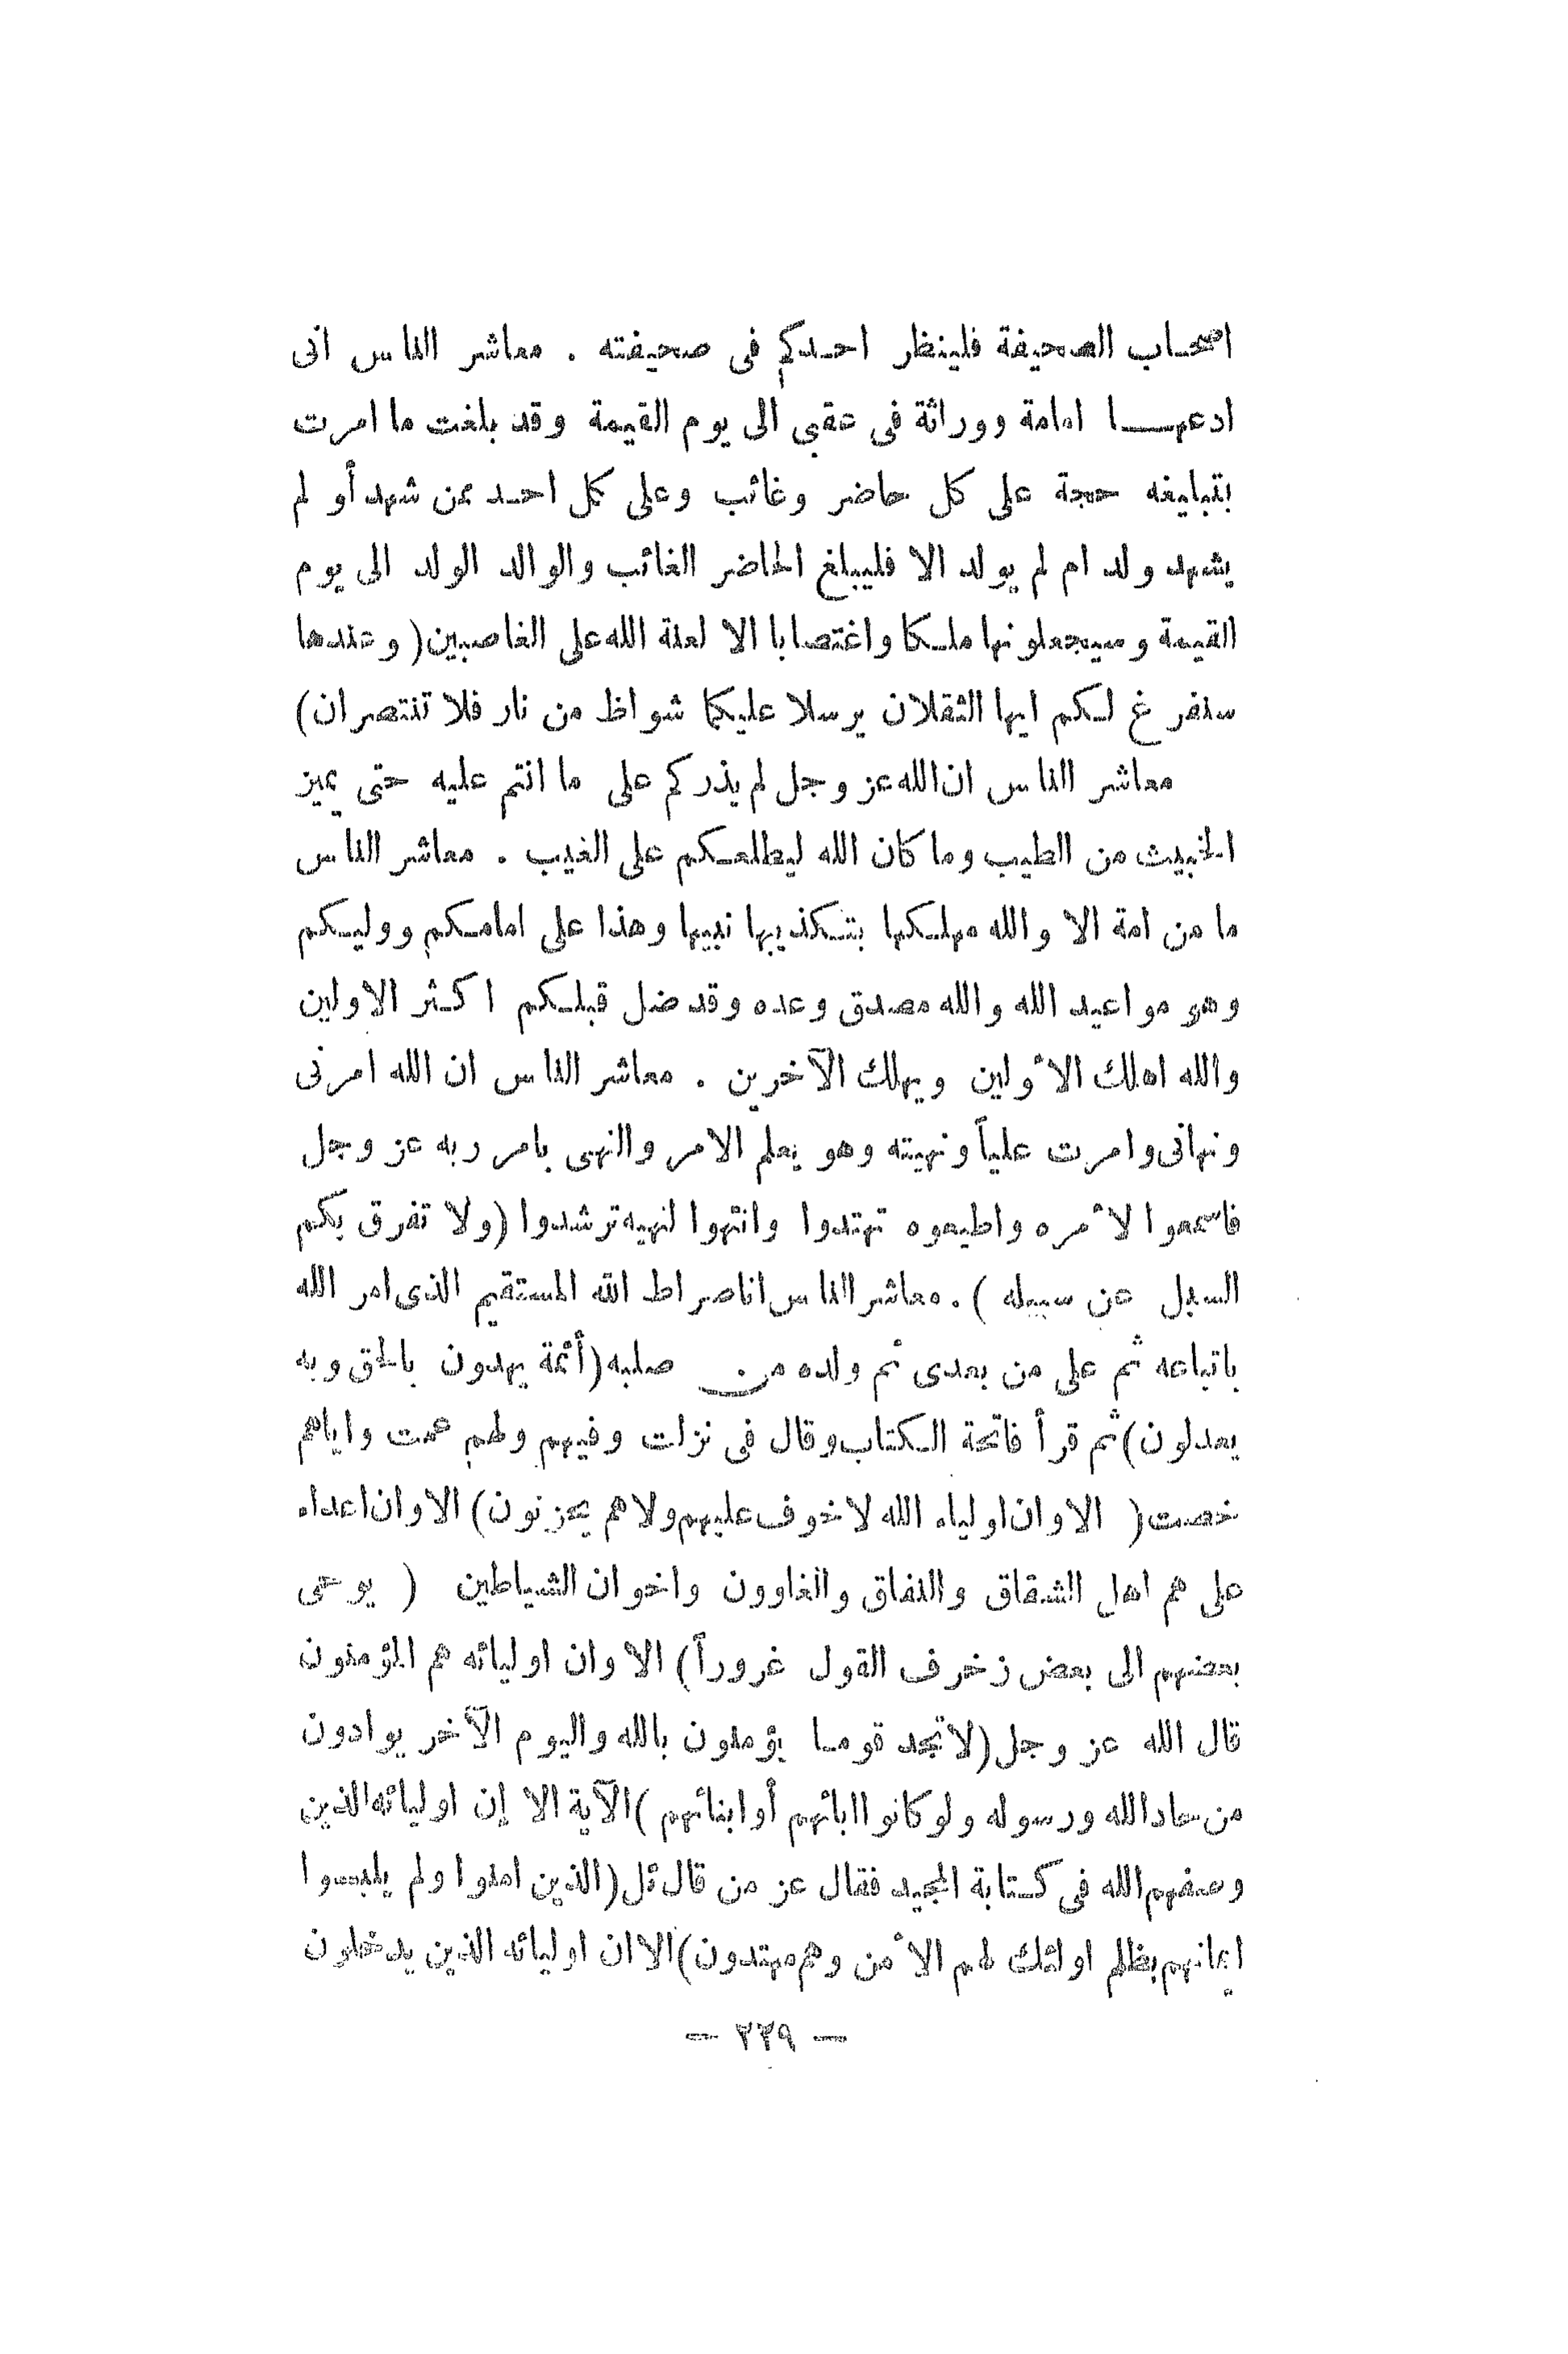 اصحاب الصحيفة فلينظر احدكم فى صحيفته . معاشر الناس انى
ادعها امامة ووراثة فى عقبى الى يوم القيمة وقد بلغت ما امرت
بتبليغه حجة على كل حاضر وغائب وعلى كل احد ممن شهد أو لم
يشهد ولد ام لم يولد الا فليبلغ الحاضر الغائب والوالد الولد الى يوم
القيمة وسيجعلونها ملكا واغتصابا الا لعنة الله على الغاصبين ( وعندها
سنفرغ لكم ايها الثقلان يرسلا عليكما شواظ من نار فلا تنتصران )
معاشر الناس ان الله عز وجل لم يذركم على ما انتم عليه حتى يميز
الخبيث من الطيب وما كان الله ليطلعكم على الغيب . معاشر الناس
ما من امة الا والله مهلكها بتكذيبها نبيها وهذا على امامكم ووليكم
وهو مواعيد الله والله مصدق وعده وقد ضل قبلكم اكثر الاولين
والله اهلك الأولين ويهلك الآخرين . معاشر الناس ان الله امرنى
ونهانى وامرت علياً ونهيته وهو يعلم الامر والنهى بامر ربه عز وجل
فاسمعوا لأمره واطيعوه تهتدوا وانتهوا لنهيه ترشدوا ( ولا تفرق بكم
السبل عن سبيله ) . معاشر الناس انا صراط الله المستقيم الذى امر الله
باتباعه ثم على من بعدى ثم ولده من صلبه ( أئمة يهدون بالحق وبه
يعدلون ) ثم قرأ فاتحة الكتاب وقال فى نزلت وفيهم ولهم عمت واياهم
خصت ( الا وان اولياء الله لا خوف عليهم ولا هم يحزنون ) الا وان اعداء
على هم اهل الشقاق والنفاق والغاوون واخوان الشياطين ( يوحى
بعضهم الى بعض زخرف القول غروراً ) الا وان اوليائه هم المؤمنون
قال الله عز وجل ( لا تجد قوما يؤمنون بالله واليوم الآخر يوادون
من حاد الله ورسوله ولو كانوا ابائهم أو ابنائهم ) الآية الا إن اوليائه الذين
وصفهم الله فى كتابة المجيد فقال عز من قائل ( الذين امنوا ولم يلبسوا
ايمانهم بظلم اولئك لهم الأمن وهم مهتدون ) الا ان اوليائه الذين يدخلون
— ٢٣٩ —